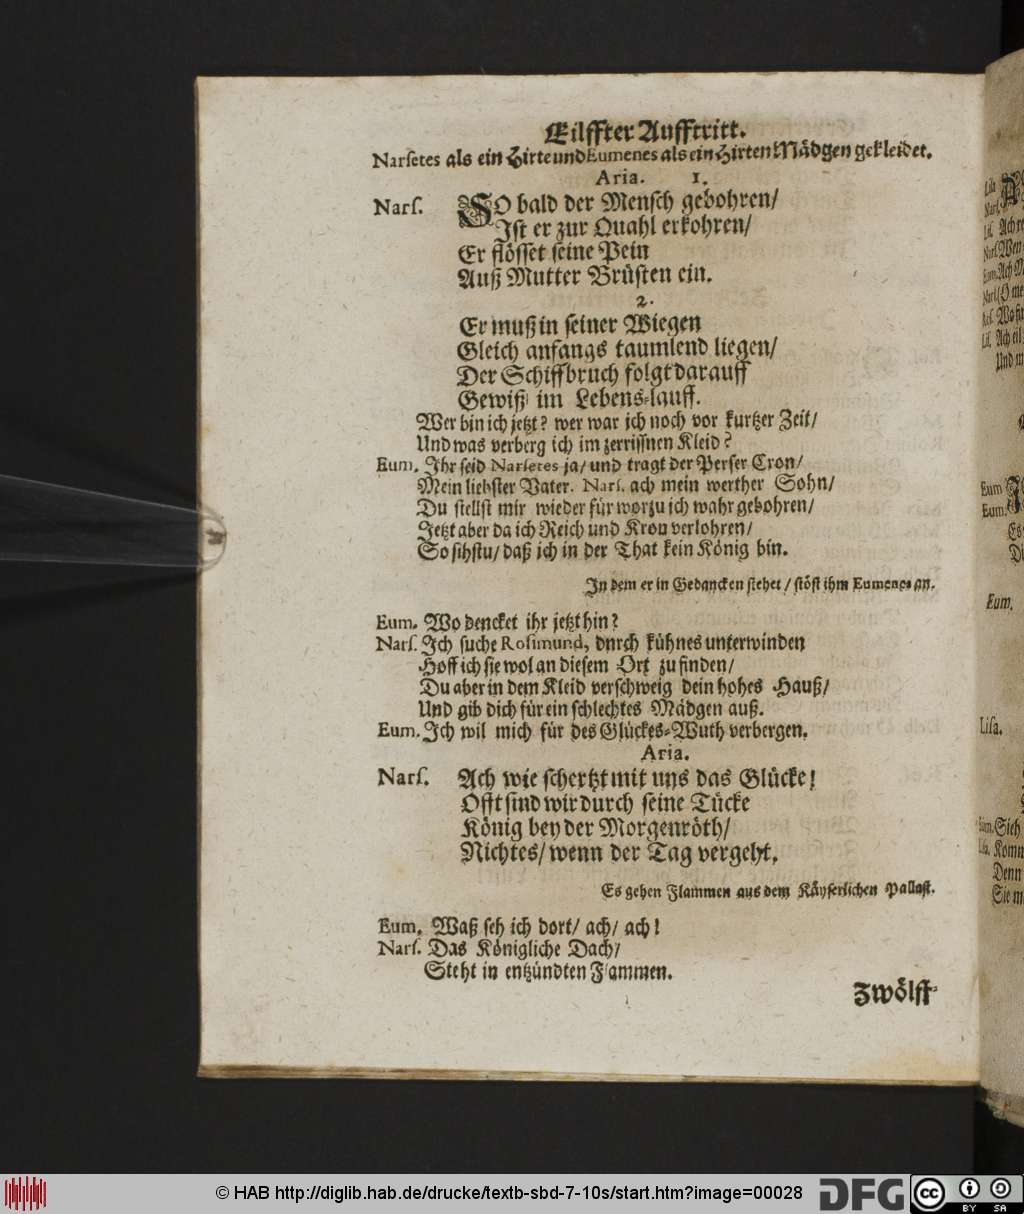 Eilffter Aufftritt.
Narsetes als ein Hirte und Eumenes als ein Hirten Mädgen gekleidet.
Aria. 1.
Nars. SO bald der Mensch gebohren/
Ist er zur Quahl erkohren/
Er flösset seine Pein
Auß Mutter Brüsten ein.
2.
Er muß in seiner Wiegen
Gleich anfangs taumlend liegen/
Der Schiffbruch folgt darauff
Gewiß im Lebens-lauff.
Wer bin ich jetzt? wer war ich noch vor kurtzer Zeit/
Und was verberg ich im zerrissnen Kleid?
Eum. Ihr seid Narsetes ja/ und tragt der Perser Cron/
Mein liebster Vater. Nars. ach mein werther Sohn/
Du stellst mir wieder für worzu ich wahr gebohren/
Jetzt aber da ich Reich und Kron verlohren/
So sihstu/ daß ich in der That kein König bin.
In dem er in Gedancken stehet/ stöst ihm Eumenes an.
Eum. Wo dencket ihr jetzt hin?
Nars. Ich suche Rosimund, dnrch kühnes unterwinden
Hoff ich sie wol an diesem Ort zu finden/
Du aber in dem Kleid verschweig dein hohes Hauß/
Und gib dich für ein schlechtes Mädgen auß.
Eum. Ich wil mich für des Glückes-Wuth verbergen.
Aria.
Nars. Ach wie schertzt mit uns das Glücke!
Offt sind wir durch seine Tücke
König bey der Morgenröth/
Nichtes/ wenn der Tag vergeht.
Es gehen Flammen aus dem Käyserlichen Pallast.
Eum. Waß seh ich dort/ ach/ ach!
Nars. Das Königliche Dach/
Steht in entzündten Flammen.
Zwölff-
Lisa.
Eum.
© HAB http://diglib.hab.de/drucke/textb-sbd-7-10s/start.htm?image=00028
DFG
cc
BY SA